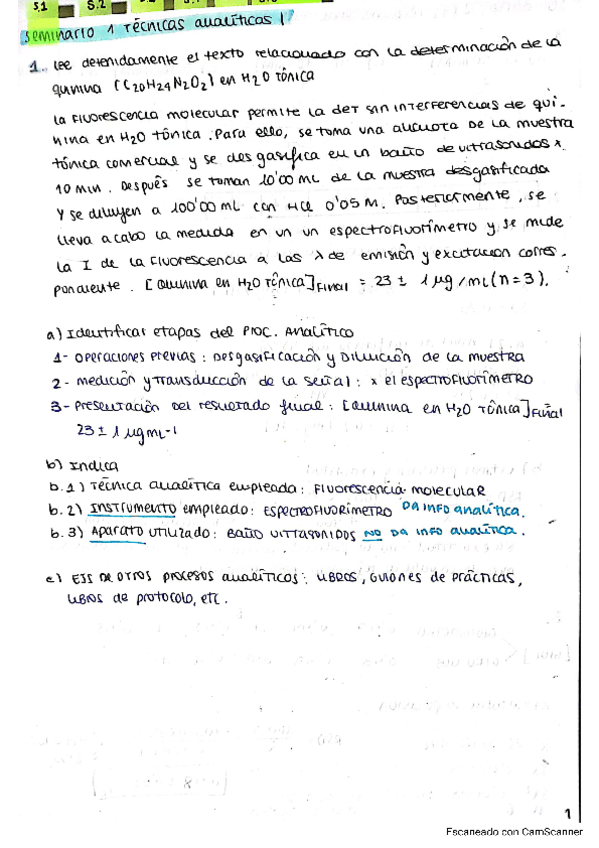 S.1 S.2
seminario 1 Técnicas analíticas I
1. Lee detenidamente el texto relacionado con la determinación de la
quinina (C20H24N2O2) en H2O tónica
La fluorescencia molecular permite la det sin interferencias de qui-
nina en H2O tónica. Para ello, se toma una alícuota de la muestra
tónica comercial y se desgasifica en un baño de ultrasonidos x
10 min. Después se toman 10'00 mL de la muestra desgasificada
y se diluyen a 100'00 mL con HCl 0'05 M. Posteriormente, se
lleva a cabo la medida en un un espectrofluorímetro y se mide
la I de la fluorescencia a las λ de emisión y excitación corres-
pondiente. [Quinina en H2O tónica]Final = 23 ± 1 μg/mL (n=3).
a) Identificar etapas del proc. analítico
1- Operaciones previas: Desgasificación y Dilución de la muestra
2- medición y transducción de la señal: x el espectrofluorímetro
3- Presentación del resultado final: [Quinina en H2O tónica]Final =
23 ± 1 μg mL-1
b) Indica
b.1) Técnica analítica empleada: Fluorescencia molecular
b.2) Instrumento empleado: espectrofluorímetro Da info analítica.
b.3) Aparato utilizado: Baño ultrasonidos NO Da info analítica.
c) Ejs de otros procesos analíticos: libros, guiones de prácticas,
libros de protocolo, etc.
1
Escaneado con CamScanner